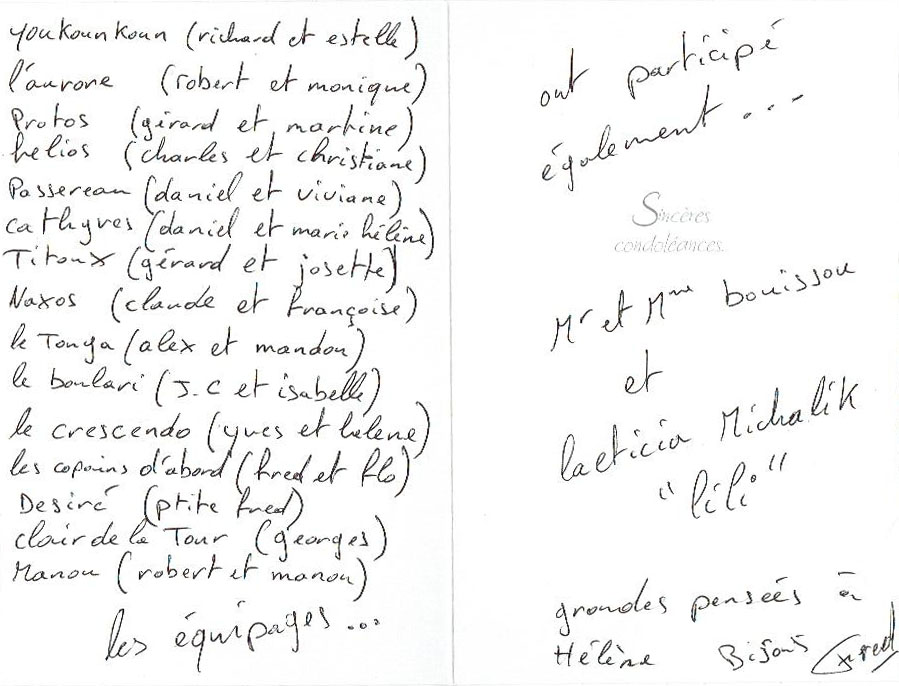 youkounkoun (richard et estelle)
l'aurore (robert et monique)
Protos (gérard et martine)
helios (charles et christiane)
Passereau (daniel et viviane)
cathyves (daniel et marie hélène)
Titoux (gérard et josette)
Naxos (claude et françoise)
le Tonga (alex et mandou)
le boulari (J.C et isabelle)
le crescendo (yves et hélène)
les copains d'abord (fred et flo)
Desiré (ptite fred)
clair de la Tour (georges)
Manou (robert et manou)
les équipages...
ont participé
également ...
Sincères
condoléances.
Mr et Mme bouissou
et
laeticia Michalik
"lili"
grandes pensées à
Hélène Bisous fred